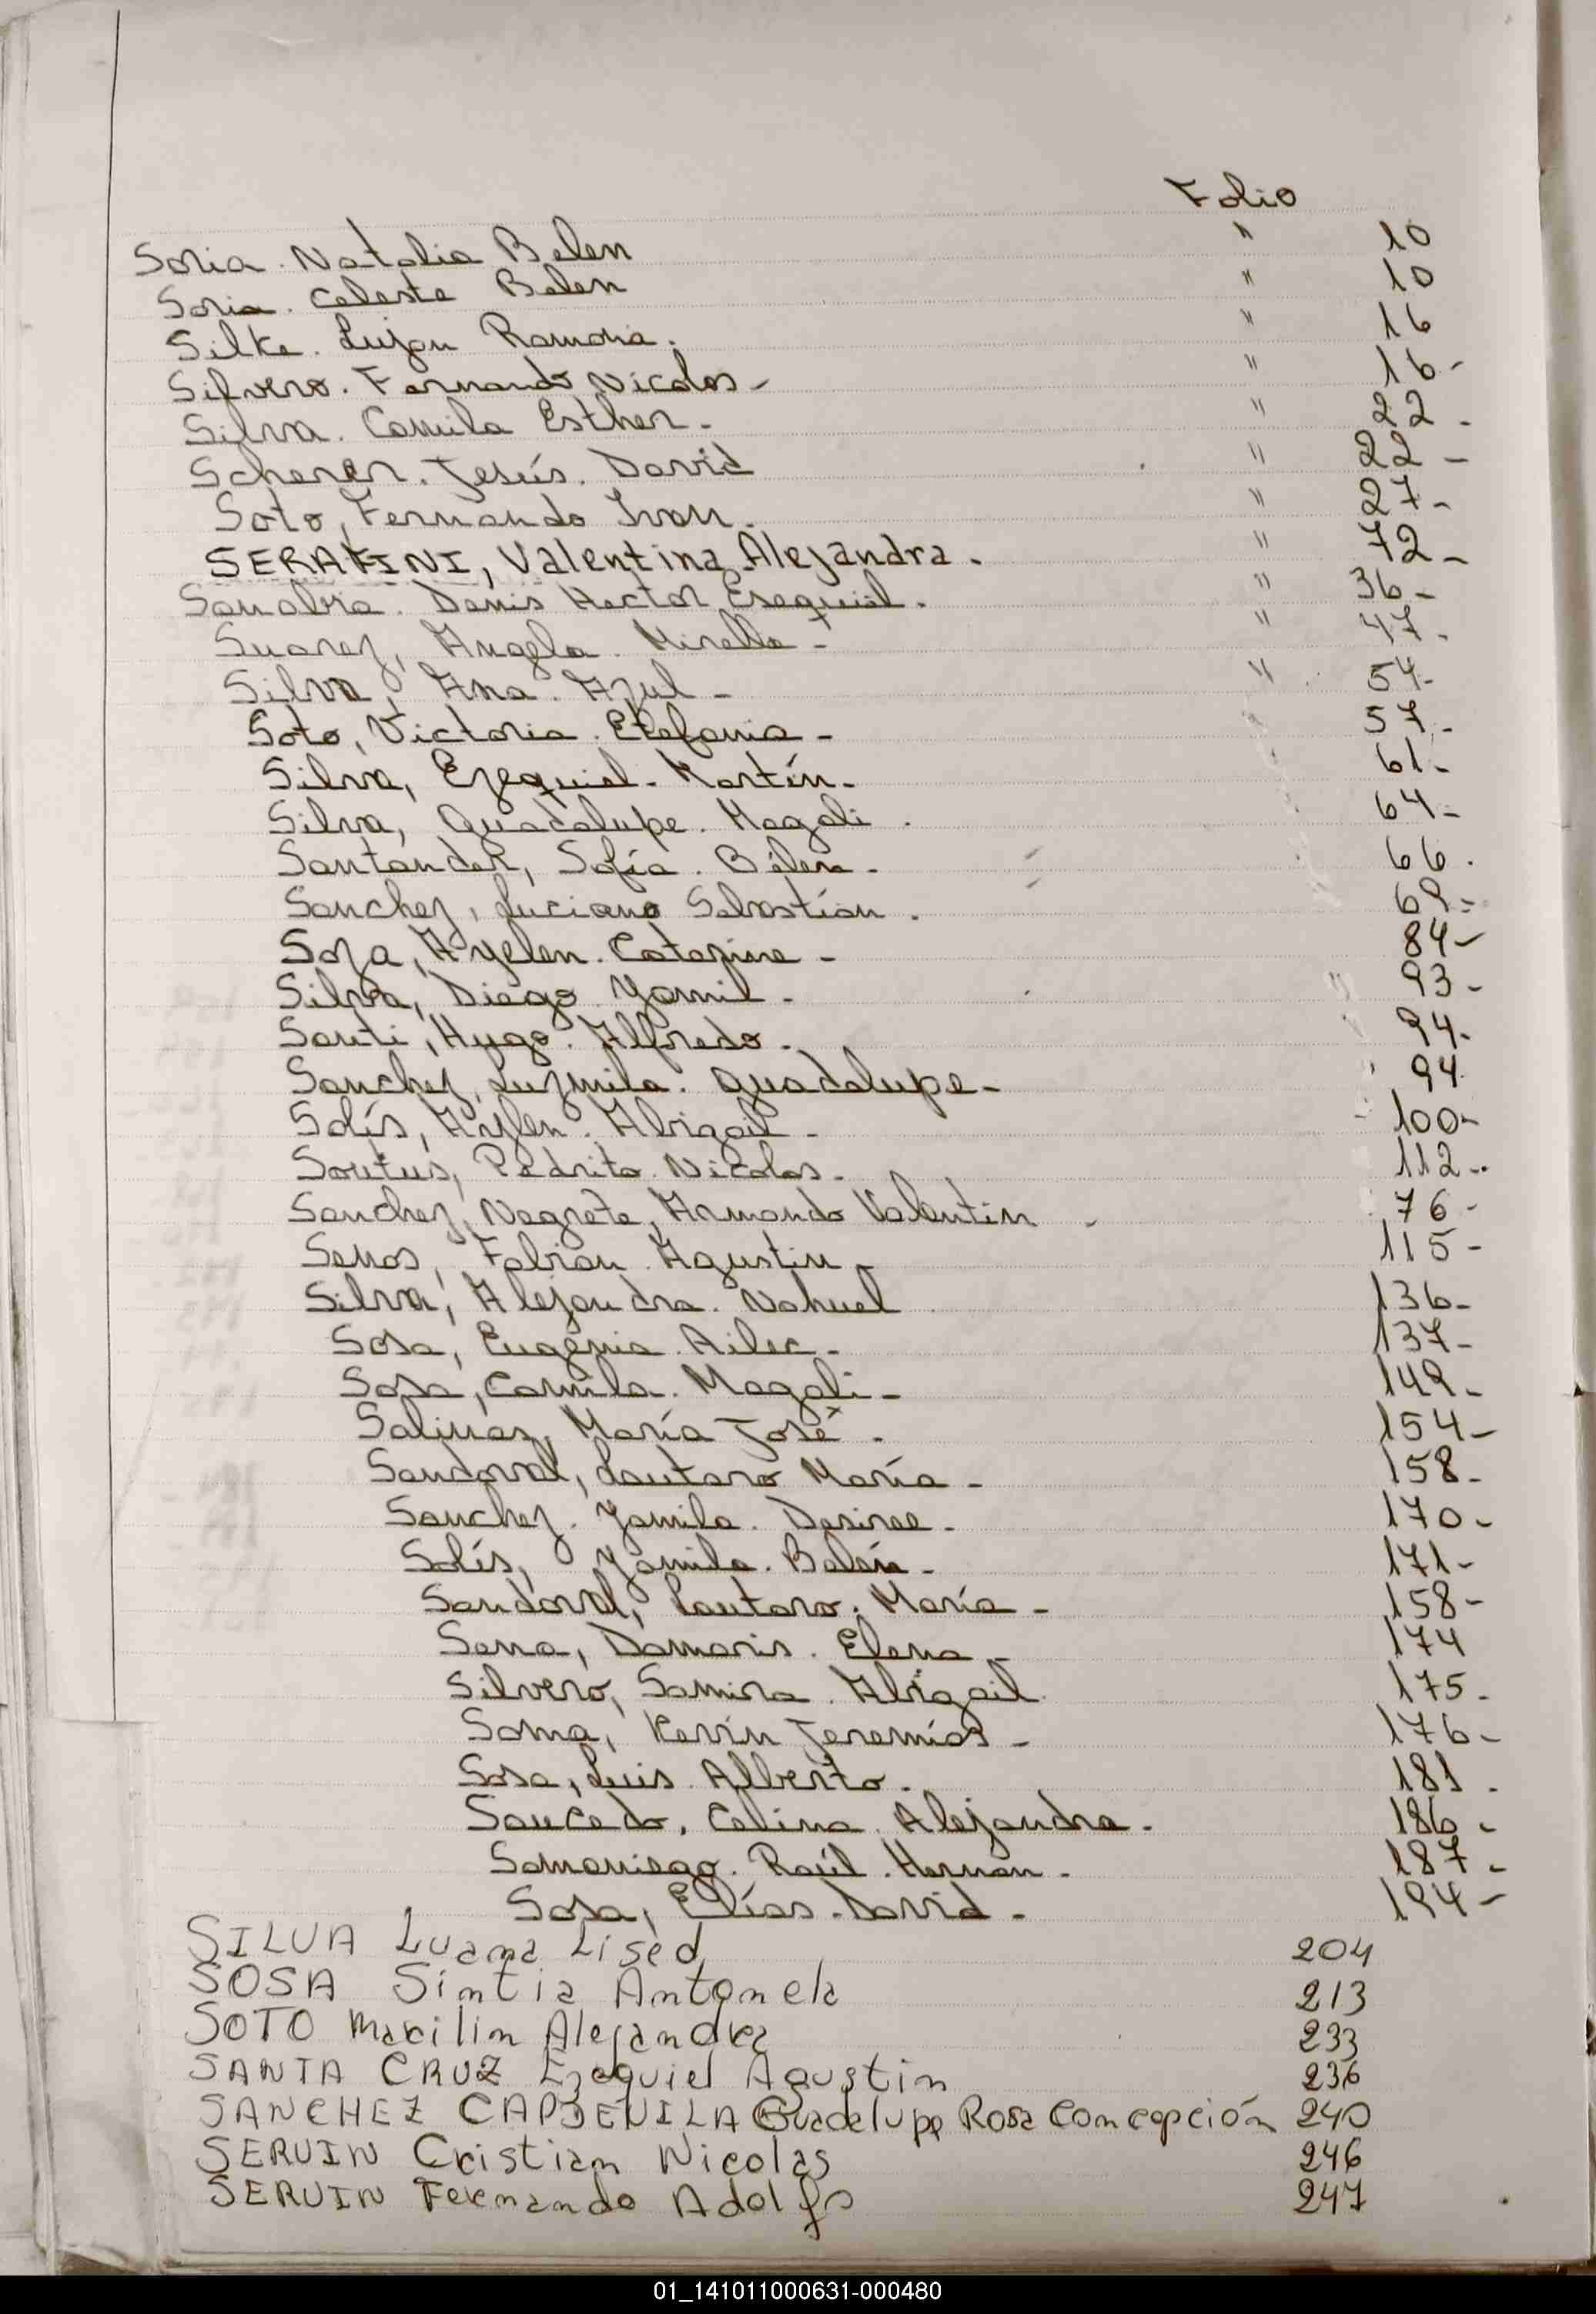 Folio
Soria. Natalia Belen " 10
Soria. Celeste Belen " 10
Silke. Lujan Ramona. " 16
Silvero. Fernando Nicolas - " 16-
Silva. Camila Esther. " 22.
Scherer. Jesús. David " 22-
Soto, Fernando Ivan. " 27-
SERAFINI, Valentina Alejandra. " 72-
Sanabria. Denis Hector Esequiel. " 36-
Suarez, Angela. Mirella - " 47.
Silva, Ana. Azul - " 54-
Soto, Victoria. Etefania - 57-
Silva, Ezequiel. Martín. 61-
Silva, Guadalupe. Magali. 64-
Santánder, Sofía. Bélen. 66.
Sanchez, Luciano Sebastían. 69-
Soza, Ayelen. Catarine - 84-
Silva, Diego Yamil - 93-
Santi, Hugo. Alfredo. 94-
Sanchez, Luzmila. Guadalupe - 94
Solís, Aylen. Abigail - 100-
Soutus, Pedrito. Nicolas. 112-
Sanchez, Negrete, Armando Valentin - 76-
Senos, Fabian. Agustin - 115-
Silva, Alejandra. Nahuel 136-
Sosa, Eugenia. Ailec. 137-
Sosa, Camila. Magali - 149-
Salinas, María José. 154-
Sandoval, Lautaro María - 158-
Sanchez. Yamila. Desiree - 170-
Solís, Yamila. Belén - 171-
Sandoval, Lautaro. María - 158-
Sena, Damaris. Elena - 174
Silvero, Samira. Abigail 175-
Soma, Kevin Jeremías - 176-
Sosa, Luis Alberto. 181.
Saucedo, Celina. Alejandra. 186-
Samaniego. Raúl. Hernan. 187-
Sosa, Elías. David - 194-
SILVA Luana Lised 204
SOSA Sintia Antonela 213
SOTO Marilin Alejandra 233
SANTA CRUZ Ezequiel Agustin 236
SANCHEZ CAPDEVILA Guadelupe Rosa Concepción 240
SERVIN Cristian Nicolas 246
SERVIN Fernando Adolfo 247
01_141011000631-000480